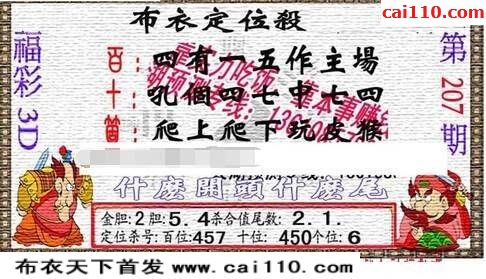 布衣定位殺
cai110.com
福彩3D
第207期
百：四有一五作主場
十：吼個四七中七四
箇：爬上爬下玩皮猴
什麼開頭什麼尾
金胆:2胆:5.4杀合值尾数:2.1.
定位杀号:百位:457 十位:450个位:6
布衣天下首发 www.cai110.com